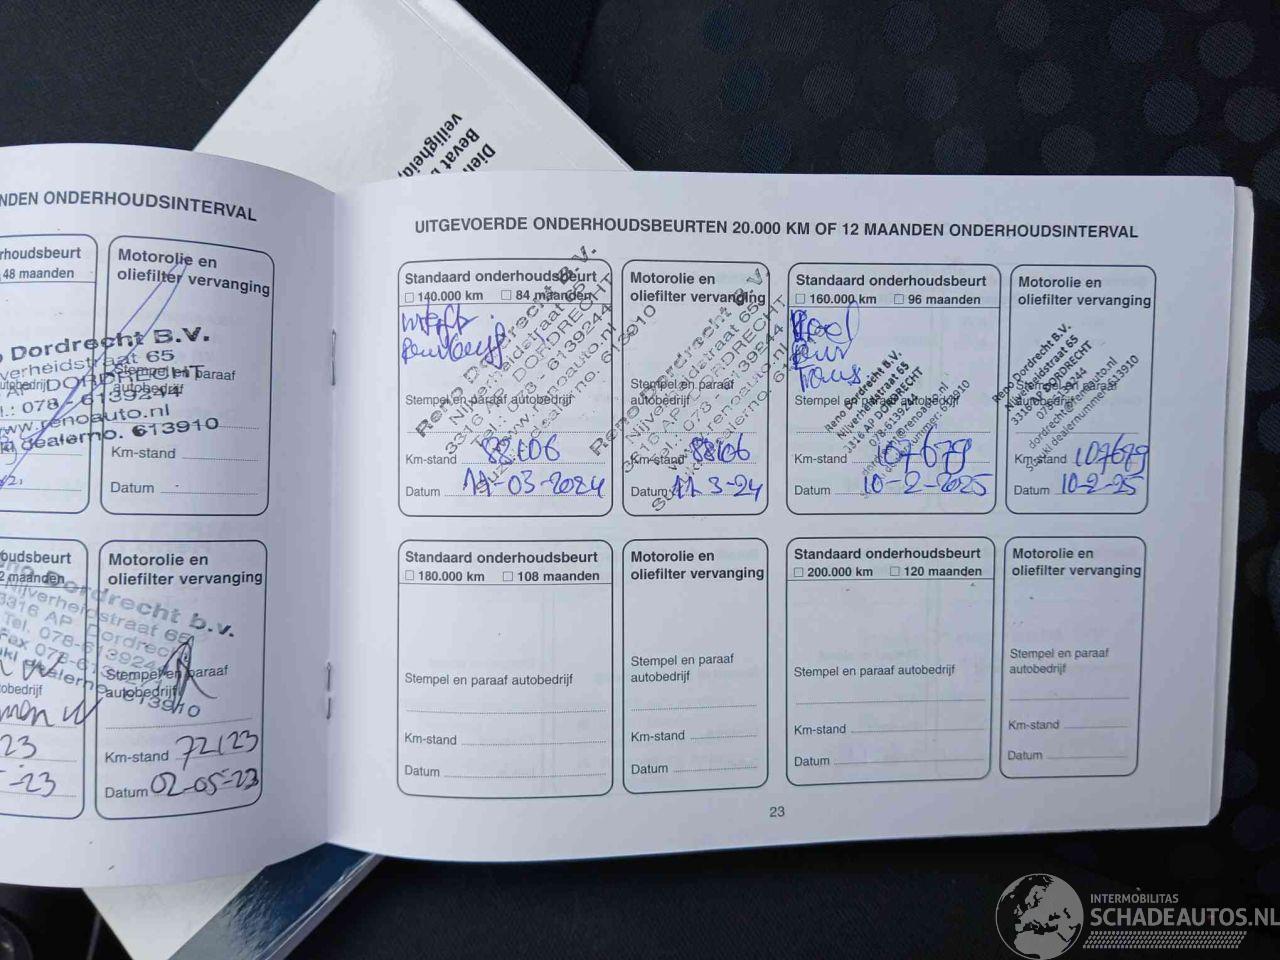 Dien
Bevat
veiligheid
NDEN ONDERHOUDSINTERVAL
rhoudsbeurt
48 maanden
Motorolie en
oliefilter vervanging
no Dordrecht B.V.
verheidstraat 65
AP DORDRECHT
el.: 078 - 6139244
www.renoauto.nl
dealerno. 613910
Stempel en paraaf
autobedrijf
Km-stand
Datum
oudsbeurt
2 maanden
Motorolie en
oliefilter vervanging
Dordrecht b.v.
Nijverheidstraat 65
3316 AP Dordrecht
Tel. 078-6139244
Fax 078-613
dealerno. 613910
Stempel en paraaf
autobedrijf
tobedrijf
23
-23
Km-stand 72123
Datum 02-05-23
UITGEVOERDE ONDERHOUDSBEURTEN 20.000 KM OF 12 MAANDEN ONDERHOUDSINTERVAL
Standaard onderhoudsbeurt
140.000 km 84 maanden
Reno Dordrecht B.V.
Nijverheidstraat 65
3316 AP DORDRECHT
Tel.: 078 - 6139244
www.renoauto.nl
Suzuki dealerno. 613910
Stempel en paraaf autobedrijf
Km-stand 88106
Datum 11-03-2024
Motorolie en
oliefilter vervanging
Reno Dordrecht B.V.
Nijverheidstraat 65
3316 AP DORDRECHT
Tel.: 078 - 6139244
www.renoauto.nl
Suzuki dealerno.
Stempel en paraaf
autobedrijf
Km-stand 88106
Datum 11 3-24
Standaard onderhoudsbeurt
160.000 km 96 maanden
Reno Dordrecht B.V.
Nijverheidstraat 65
3316 AP DORDRECHT
078-6139244
dordrecht@renoauto.nl
Suzuki dealernummer 613910
Stempel en paraaf autobedrijf
Km-stand 107679
Datum 10-2-2025
Motorolie en
oliefilter vervanging
Reno Dordrecht B.V.
Nijverheidstraat 65
3316 AP DORDRECHT
078-6139244
dordrecht@renoauto.nl
Suzuki dealernummer 613910
Stempel en paraaf
autobedrijf
Km-stand 107679
Datum 10-2-25
Standaard onderhoudsbeurt
180.000 km 108 maanden
Stempel en paraaf autobedrijf
Km-stand
Datum
Motorolie en
oliefilter vervanging
Stempel en paraaf
autobedrijf
Km-stand
Datum
Standaard onderhoudsbeurt
200.000 km 120 maanden
Stempel en paraaf autobedrijf
Km-stand
Datum
Motorolie en
oliefilter vervanging
Stempel en paraaf
autobedrijf
Km-stand
Datum
23
INTERMOBILITAS
SCHADEAUTOS.NL